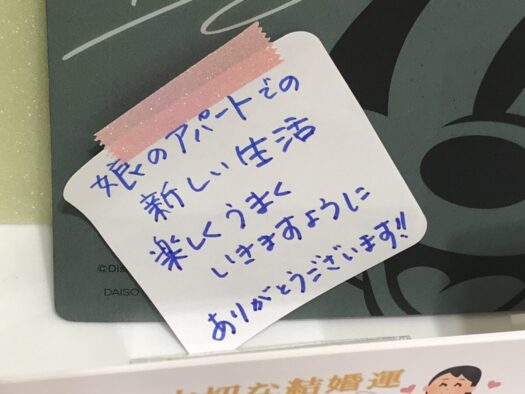 娘のアパートでの
新しい生活
楽しくうまく
いきますように
ありがとうございます!!
©Dis
DAISO
切な結婚運